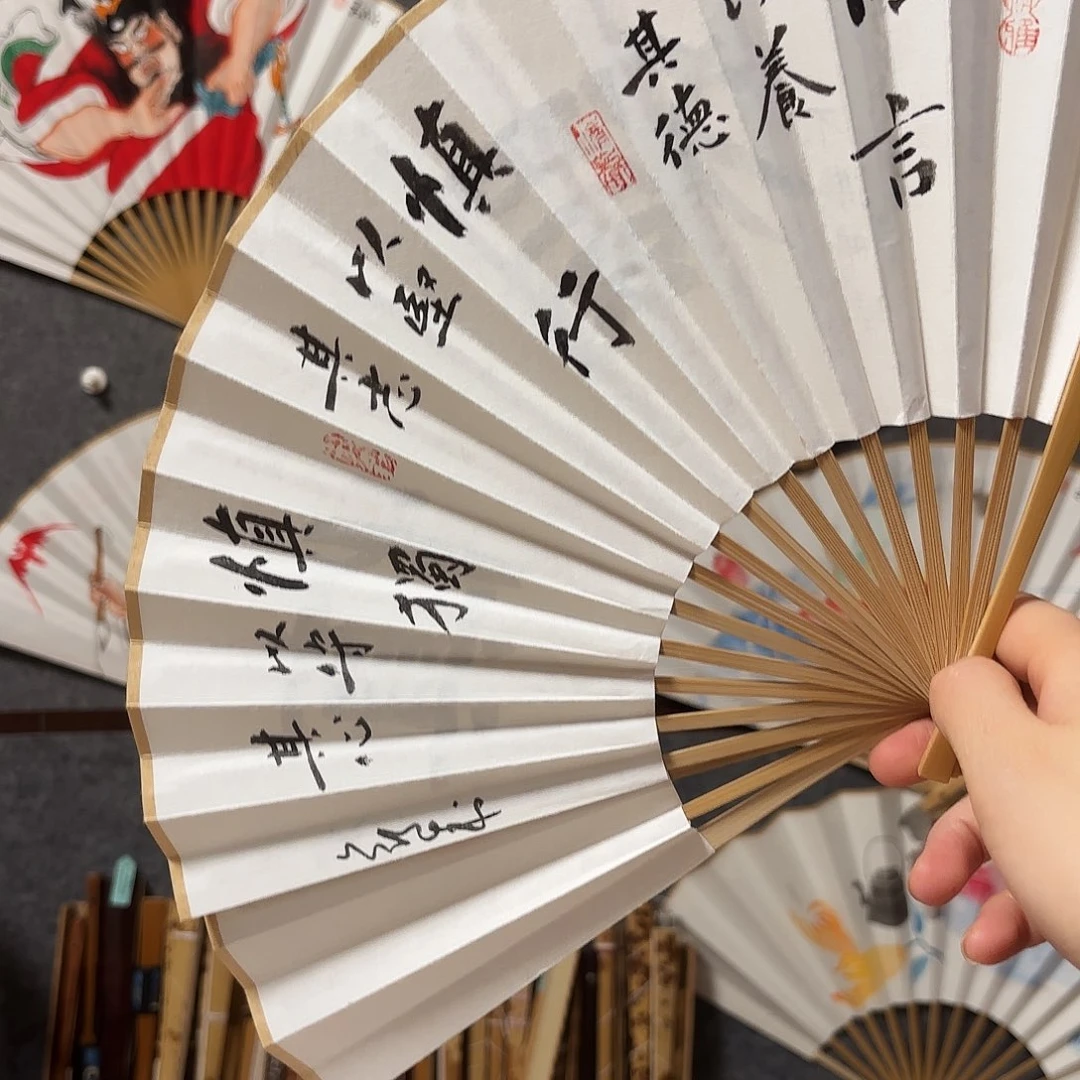 言
養
其德
慎行
以堅
其志
慎獨
以守
其心